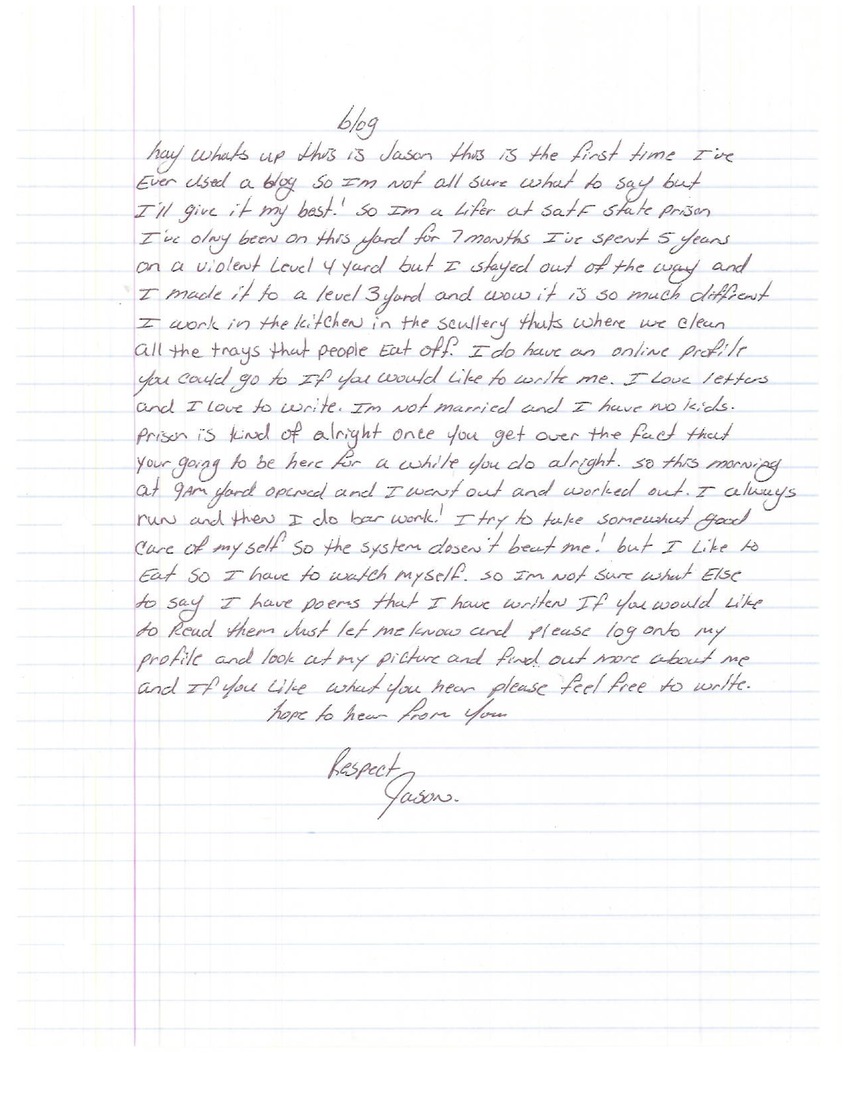 blog
hay whats up this is Jason this is the first time I've
Ever used a blog so I'm not all sure what to say but
I'll give it my best! so Im a Lifer at SatF state prison
I've olny been on this yard for 7 months I've spent 5 years
on a violent Level 4 yard but I stayed out of the way and
I made it to a level 3 yard and wow it is so much diffrent
I work in the kitchen in the scullery thats where we clean
all the trays that people Eat off. I do have an online profile
you could go to If you would like to write me. I Love letters
and I love to write. Im not married and I have no kids.
Prison is kind of alright once you get over the fact that
your going to be here for a while you do alright. so this morning
at 9AM yard opened and I went out and worked out. I always
run and then I do bar work! I try to take somewhat good
care of my self so the system dosen't beat me! but I Like to
Eat so I have to watch myself. so Im not sure what Else
to say I have poems that I have writen If you would Like
to Read them Just let me know and please log onto my
profile and look at my picture and find out more about me
and If you Like what you hear please feel free to write.
hope to hear from you
Respect
Jason.